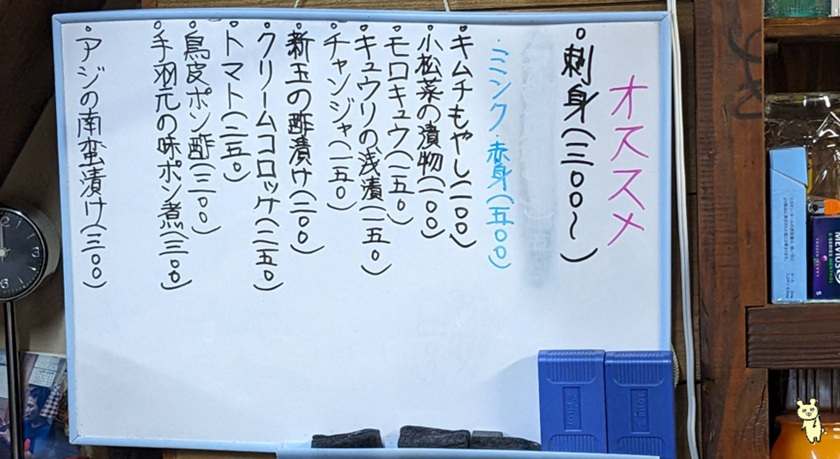 オススメ
・刺身(三〇〇〜)
・ミンク赤身(五〇〇)
・キムチもやし(一〇〇)
・小松菜の漬物(一〇〇)
・モロキュウ(一五〇)
・キュウリの浅漬(一五〇)
・チャンジャ(一五〇)
・新玉の酢漬け(二〇〇)
・クリームコロッケ(二五〇)
・トマト(二五〇)
・鳥皮ポン酢(三〇〇)
・手羽元の味ポン煮(三〇〇)
・アジの南蛮漬け(三〇〇)